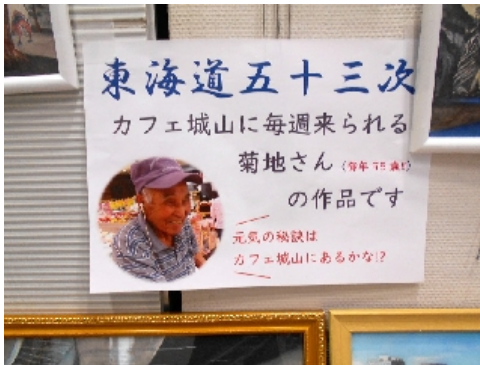 東海道五十三次
カフェ城山に毎週来られる
菊地さん
の作品です
元気の秘訣は
カフェ城山にあるかな!?